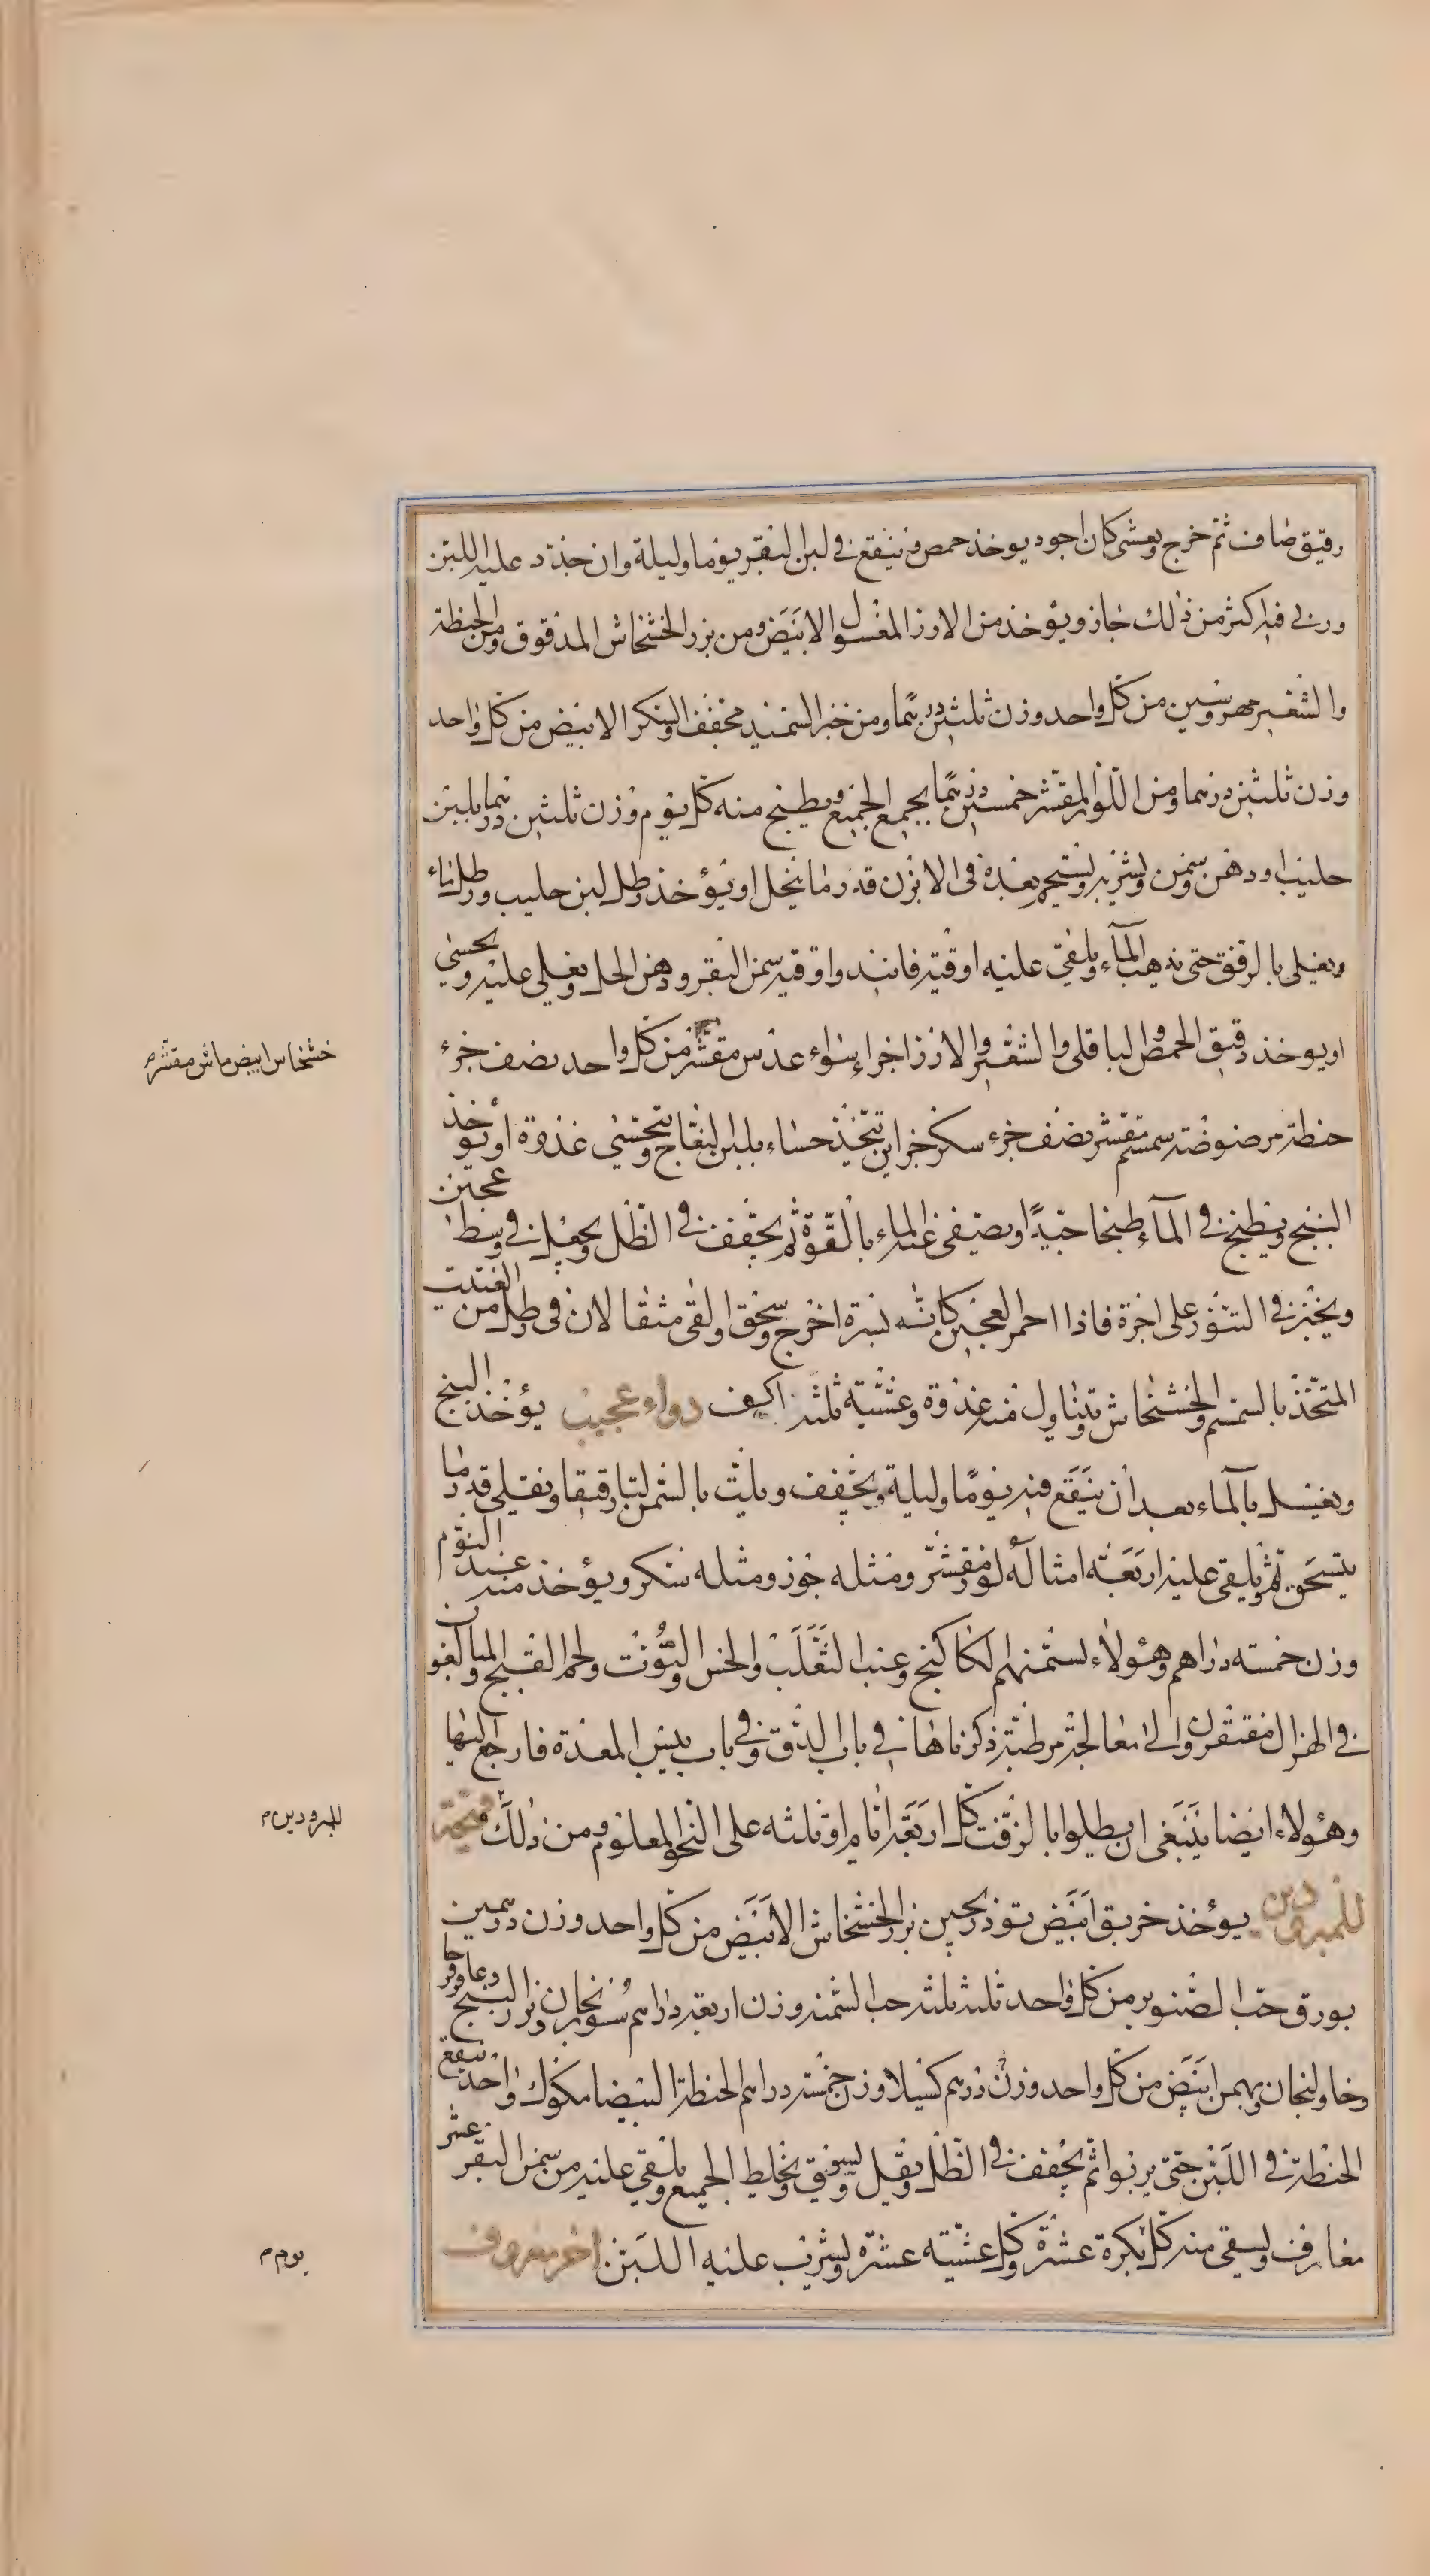 رقيق صاف ثم خرج ويعشى كان اجود يوخذ حمص وينقع في لبن البقر يوما وليلة وان جدد عليه اللبن
وربي فيه اكثر من ذلك جاز ويؤخذ من الارز المغسول الابيض ومن بزر الخشخاش المدقوق ومن الحنطة
والشعير مهروسين من كل واحد وزن ثلثين درهما ومن خبز السميد مجفف والسكر الابيض من كل واحد
وزن ثلثين درهما ومن اللوز المقشر خمسين درهما يجمع الجميع ويطبخ منه كل يوم وزن ثلثين درهما بلبن
حليب او دهن وسمن ويشربه ويستحم بعده في الابزن قدر ما ينحل او يؤخذ رطل لبن حليب ورطل ماء
ويغلي بالرفق حتى يذهب المآء ويلقي عليه اوقية فانيد واوقية سمن البقر ودهن الحل ويغلي عليه ويحسي
او يوخذ دقيق الحمص والباقلي والشعير والارز اجزاء سواء عدس مقشر من كل واحد نصف جزء
حنطة مرضوضة سمسم مقشر نصف جزء سكر جزاين يتخذ حساء بلبن النعاج ويتحسي غدوة او يؤخذ
البنج ويطبخ في المآء طبخا جيدا ويصفى عنه الماء بالقوة ثم يجفف في الظل ويجعل في وسط عجين
ويخبز في التنور على اجرة فاذا احمر العجين كانه بسرة اخرج وسحق والقى مثقالان في رطل من الفتيت
المتخذ بالسمسم والخشخاش ويتناول منه غدوة وعشية ثلثه اكف دواء عجيب يؤخذ البنج
ويغسل بالمآء بعد ان ينقع فيه يوما وليلة ويجفف ويلت بالسمن لتا رقيقا ويقلي قدر ما
يتسحق ثم يلقي عليه اربعة امثاله لوز مقشر ومثله جوز ومثله سكر ويؤخذ منه عند النوم
وزن خمسة دراهم وهؤلاء لسمنهم الكاكنج وعنب الثعلب والخس والتوت ولحم القبج والمبالغون
في الهزال مفتقرون الى معالجة مرطبة ذكرناها في باب الدق وفي باب يبس المعدة فارجع اليها
وهؤلاء ايضا ينبغي ان يطلوا بالزفت كل اربعة ايام او ثلثه على النحو المعلوم ومن ذلك
للمبرودين يؤخذ خربق ابيض توذريحين بزر الخشخاش الابيض من كل واحد وزن درهمين
بورق حب الصنوبر من كل واحد ثلثه ثلثه حب السمنه وزن اربعة دراهم سورنجان وبزر البنج وعاقرقرحا
وخاولنجان وبهمن ابيض من كل واحد وزن درهم كسيلا وزن خمسة دراهم الحنطة البيضا مكوك واحد ينقع
الحنطة في اللبن حتى يربوا ثم يجفف في الظل ويقلي ويسوق ويخلط الجميع ويلقي عليه من سمن البقر عشر
مغارف ويسقي منه كل بكرة عشرة وكل عشية عشرة ويشرب عليه اللبن اخر معروف
خشخاس ابيض ماش مقشر م
للمبرودين م
يوم م